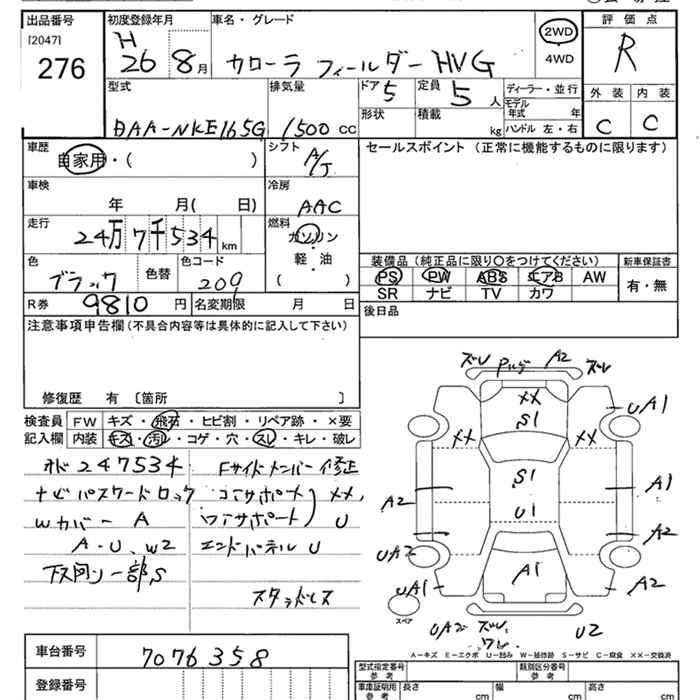 出品番号
[2047]
276
初度登録年月
H
26 8月
車名・グレード
カローラ フィールダー HVG
2WD
・
4WD
評価点
R
外装 内装
C C
型式
DAA-NKE165G
排気量
1500 cc
ドア
5
定員
5 人
形状
積載
kg
ディーラー・並行
モデル
年式 年
ハンドル 左・右
車歴
自家用・( )
シフト
A/T
セールスポイント(正常に機能するものに限ります)
車検
年 月( 日)
冷房
AAC
走行
24万7千534 km
燃料
ガソリン
・
軽・油
( )
色
ブラック
色替
色コード
209
装備品(純正品に限り○をつけてください)
PS PW ABS エアB AW
SR ナビ TV カワ
新車保証書
有・無
R券
9810 円
名変期限 月 日
後日品
注意事項申告欄(不具合内容等は具体的に記入して下さい)
修復歴 有 〔箇所 〕
検査員
記入欄
FW キズ・飛石・ヒビ割・リペア跡・×要
内装 キズ・汚れ・コゲ・穴・スレ・キレ・破レ
メド 247534
ナビパスワードロック
Wカバー A
A・U、W2
下回り一部S
Fサイドメンバー修正
コアサポート XX,
ロアサポート U
エンドパネル U
スタッドレス
ズレ A2 ズレ
XX
S1
UA1
XX XX
S1
U1
A2
A1
A2
UA2
A1
A2
UA1
スペア
UA2 ズレ U2
ワレ
A-キズ E-エクボ U-凹み W-補修跡 S-サビ C-腐食 XX-交換済
車台番号
7076358
登録番号
型式指定番号
参考
類別区分番号
参考
車庫証明用
参考
長さ
cm
幅
cm
高さ
cm